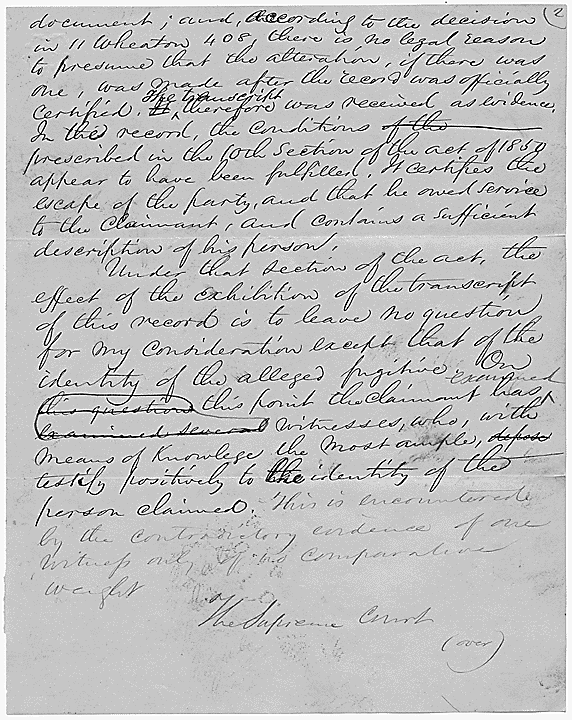 2
document; and, according to the decision
in 11 Wheaton 408, there is no legal reason
to presume that the alteration, if there was
one, was made after the record was officially
The transcript
certified. It, therefore was received as evidence.
In the record, the conditions of the
prescribed in the 10th Section of the act of 1850
appear to have been fulfilled. It certifies the
escape of the party, and that he owed service
to the Claimant, and contains a sufficient
description of his person.
Under that section of the act, the
effect of the exhibition of the transcript
of this record is to leave no question
for my consideration except that of the
identity of the alleged fugitive. On
examined
this question this point the claimant has
examined several witnesses, who, with
means of Knowlege the most ample, depose
testify positively to the identity of the
person claimed. This is encountered
by the contradictory evidence of one
witness only of no comparative
weight
The Supreme Court
(over)